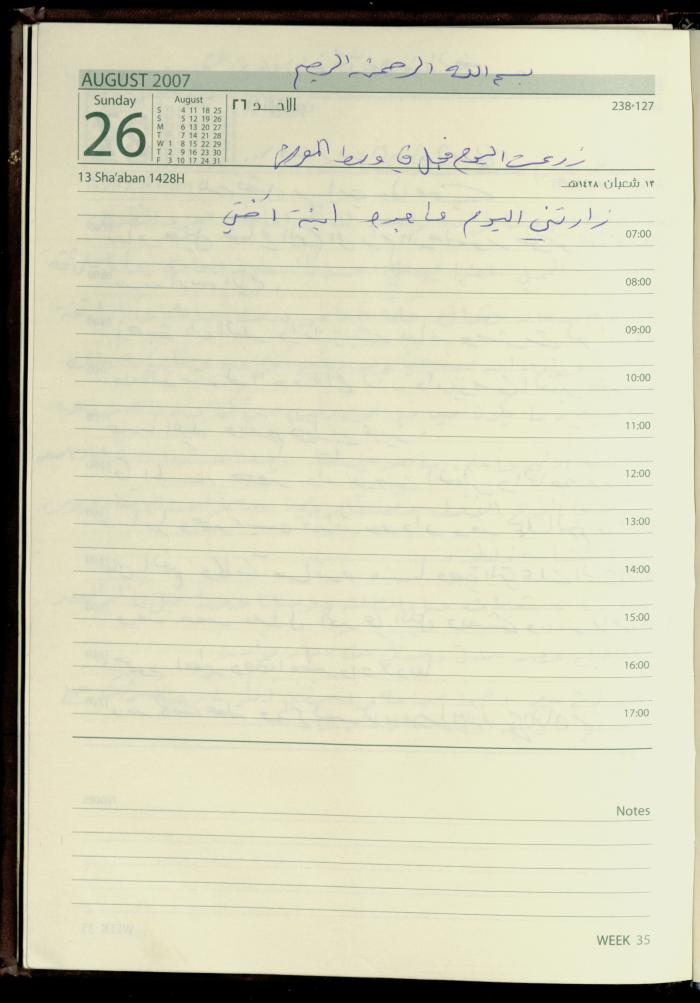 بسم الله الرحمن الرحيم
AUGUST 2007
Sunday
26
August
S 4 11 18 25
S 5 12 19 26
M 6 13 20 27
T 7 14 21 28
W 1 8 15 22 29
T 2 9 16 23 30
F 3 10 17 24 31
الأحد ٢٦
238-127
زرعت اليوم فجل في وسط
13 Sha'aban 1428H
١٣ شعبان ١٤٢٨هـ
زارتني اليوم ماجده ابنة أختي
07:00
08:00
09:00
10:00
11:00
12:00
13:00
14:00
15:00
16:00
17:00
Notes
WEEK 35